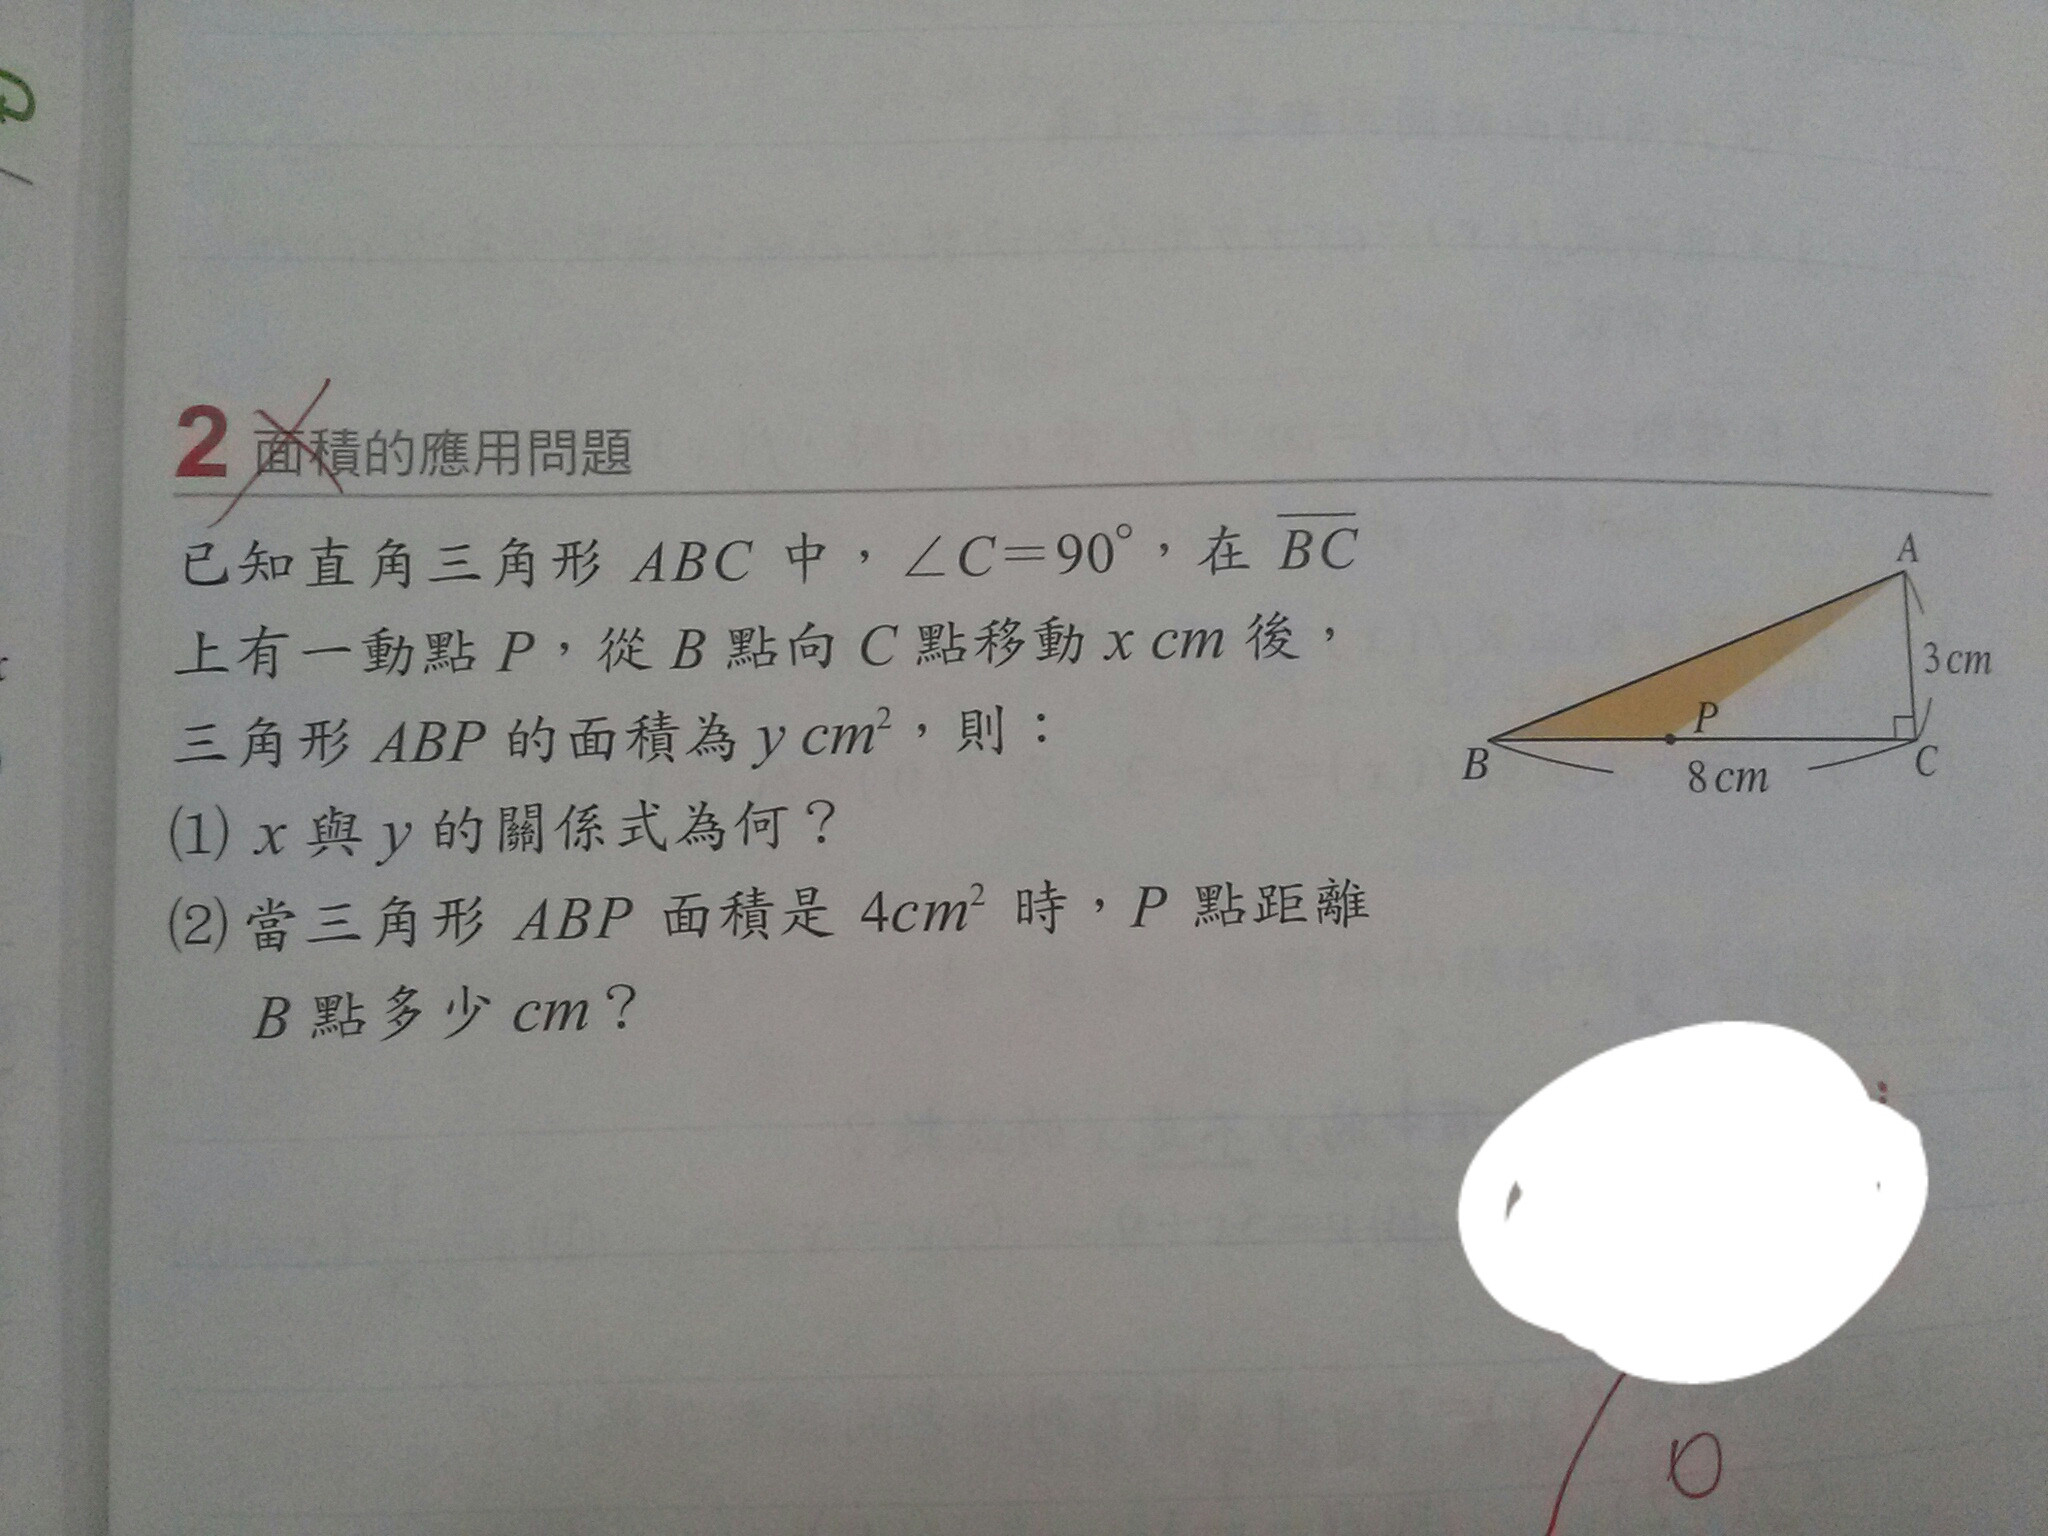 2 面積的應用問題
已知直角三角形 ABC 中，∠C=90°，在 B̅C̅
上有一動點 P，從 B 點向 C 點移動 x cm 後，
三角形 ABP 的面積為 y cm²，則：
(1) x 與 y 的關係式為何？
(2) 當三角形 ABP 面積是 4cm² 時，P 點距離
B 點多少 cm？
A
3cm
P
B
8cm
C